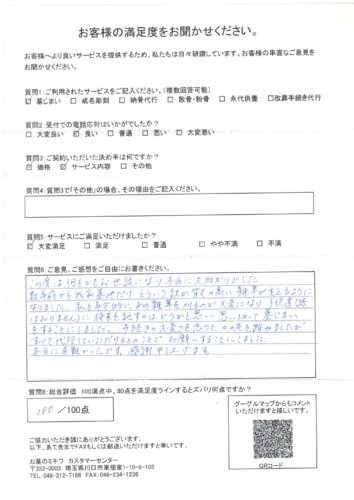 お客様の満足度をお聞かせください。
お客様へより良いサービスを提供するため、私たちは日々研鑽しています。お客様の率直なご意見を
お聞かせください。
質問1: ご利用されたサービスをご記入ください。(複数回答可能)
☑ 墓じまい □ 戒名彫刻 □ 納骨代行 □ 散骨・粉骨 □ 永代供養 □改葬手続き代行
質問2 受付での電話応対はいかがでしたか?
□ 大変良い ☑ 良い □ 普通 □ 悪い □ 大変悪い
質問3: ご契約いただいた決め手は何ですか?
☑ 価格 ☑ サービス内容 □ その他
質問4: 質問3で「その他」の場合、その理由をご記入ください。
質問5: サービスにご満足いただけましたか?
☑ 大変満足 □ 満足 □ 普通 □ やや不満 □ 不満
質問6: ご意見、ご感想をご自由にお書きください。
この度は何もかもお世話になり本当に大助かりでした
数年前から我家墓地だけ どういう訳か 背の高い雑草が生えるように
なりました。私も年令的に あの雑草を刈るのが大変になり
はおりません)に将来を託すのはどうかと思い 思いきって墓じまい
をすることにしました。手続きの大変さを思うと 二の足を踏みましたが
すべて代行していただけるとのことで お願いすることにしました。
本当に有難かったです。感謝申し上げます。
質問8: 総合評価 100満点中、80点を満足度ラインするとズバリ何点ですか?
100 /100点
グーグルマップからもコメント
いただけますと嬉しいです。
QRコード
ご協力いただき誠にありがとうございます。
以下、あて先までFAXもしくは郵送いただけますと幸いです。
お墓のミキワ カスタマーセンター
〒332-0003 埼玉県川口市東領家1-10-6-105
TEL:048-212-7166 FAX:048-234-1236